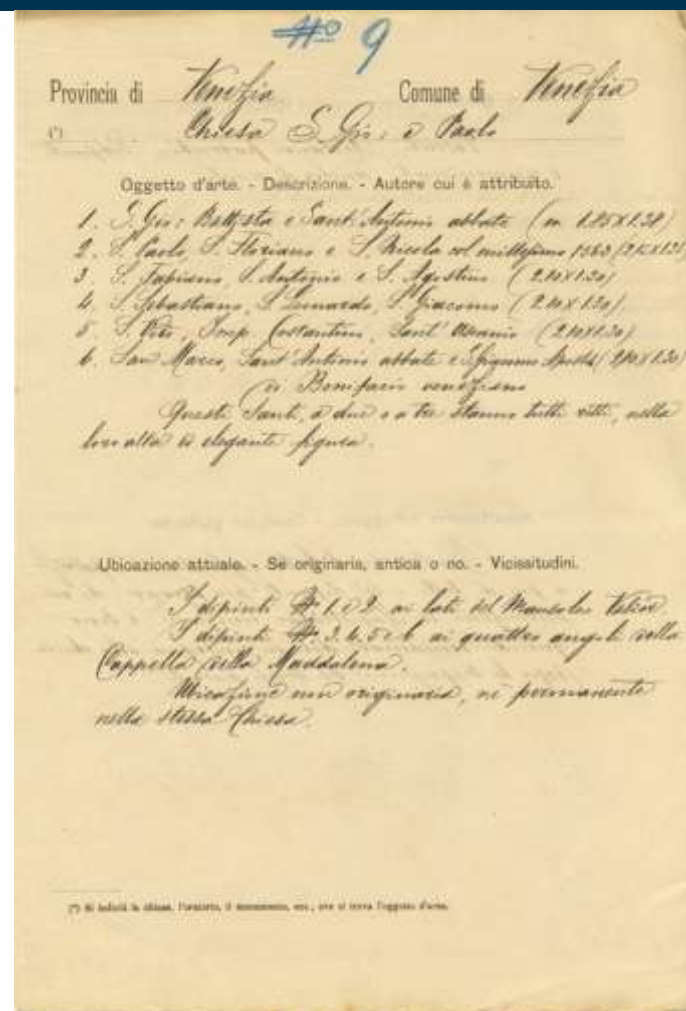 No 9
Provincia di Venezia Comune di Venezia
(*) Chiesa S. Gio: e Paolo
Oggetto d'arte. - Descrizione. - Autore cui è attribuito.
1. S. Gio: Battista e Sant'Antonio abbate (m 1.85x1.38)
2. S. Paolo, S. Floriano e S. Nicola col millesimo 1563
3. S. Fabiano, S. Antonio e S. Agostino (2.10x1.30)
4. S. Sebastiano, S. Leonardo, S. Giacomo (2.10x1.30)
5. S. Vito, Imp. Costantino, Sant' (2.10x1.30)
6. San Marco, Sant'Antonio abbate e (2.10x1.30)
di Bonifacio veneziano
Questi Santi, a due o a tre stanno tutti ritti, nella
loro alta ed elegante figura.
Ubicazione attuale. - Se originaria, antica o no. - Vicissitudini.
I dipinti No 1. e 2 ai lati del Mausoleo Valier.
I dipinti No 3. 4. 5 e 6 ai quattro angoli della
Cappella della Maddalena.
Ubicazione non originaria, ne permanente
nella stessa Chiesa.
(*) Si indichi la chiesa, l'oratorio, il monumento, ecc., ove si trova l'oggetto d'arte.